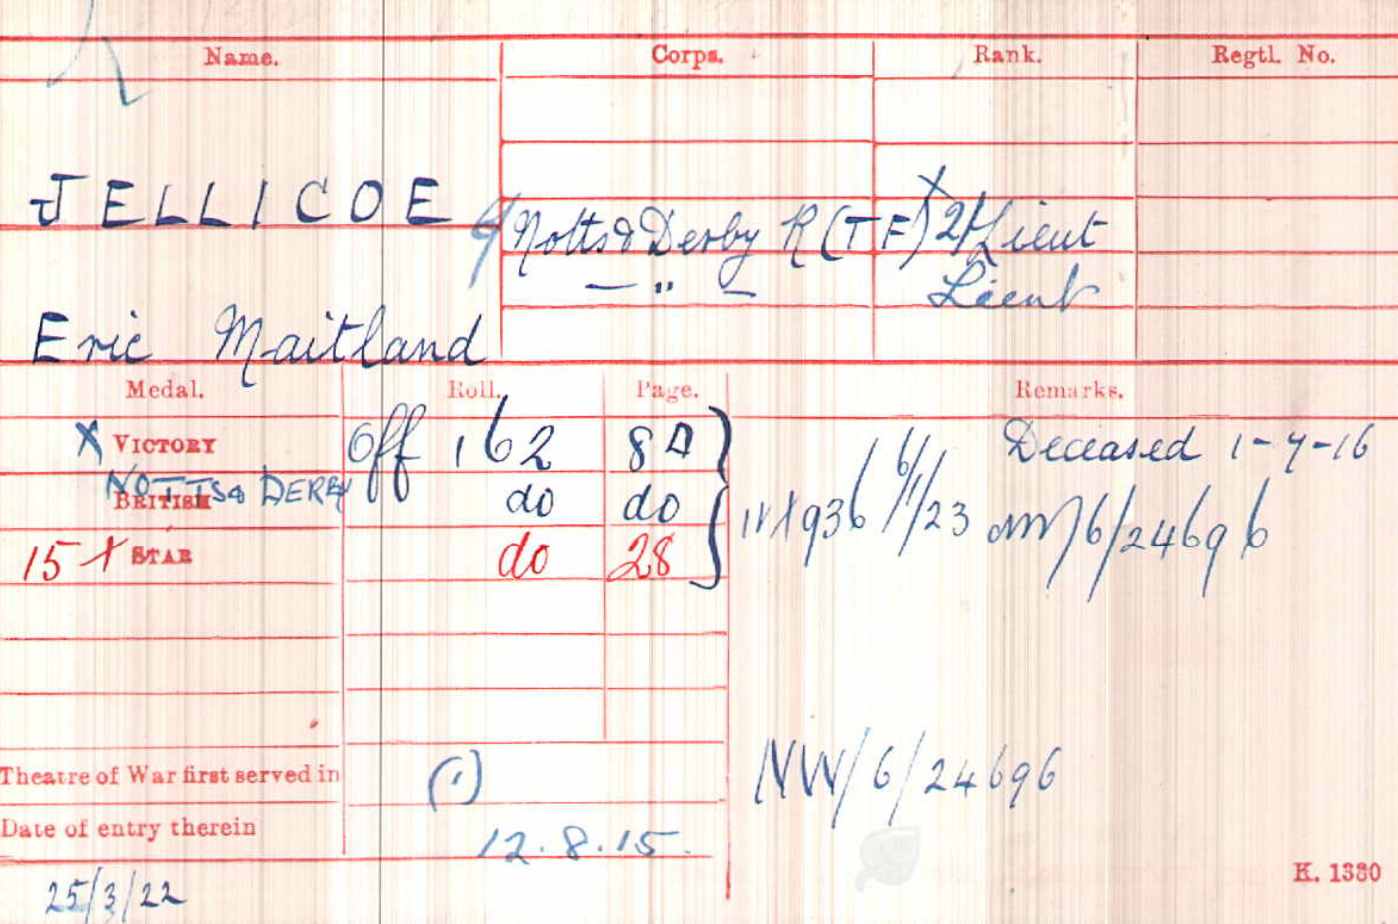 Name. Corps. Rank. Regtl. No.
JELLICOE
Notts & Derby R (TF) X 2/Lieut
— " — Lieut
Eric Maitland
Medal. Roll. Page. Remarks.
X VICTORY Off 162 8A Deceased 1-7-16
NOTTS & DERBY
BRITISH do do
IVX936 6/1/23 NW/6/24696
15 X STAR do 28
NW/6/24696
Theatre of War first served in (1)
Date of entry therein 12.8.15.
K. 1380
25/3/22